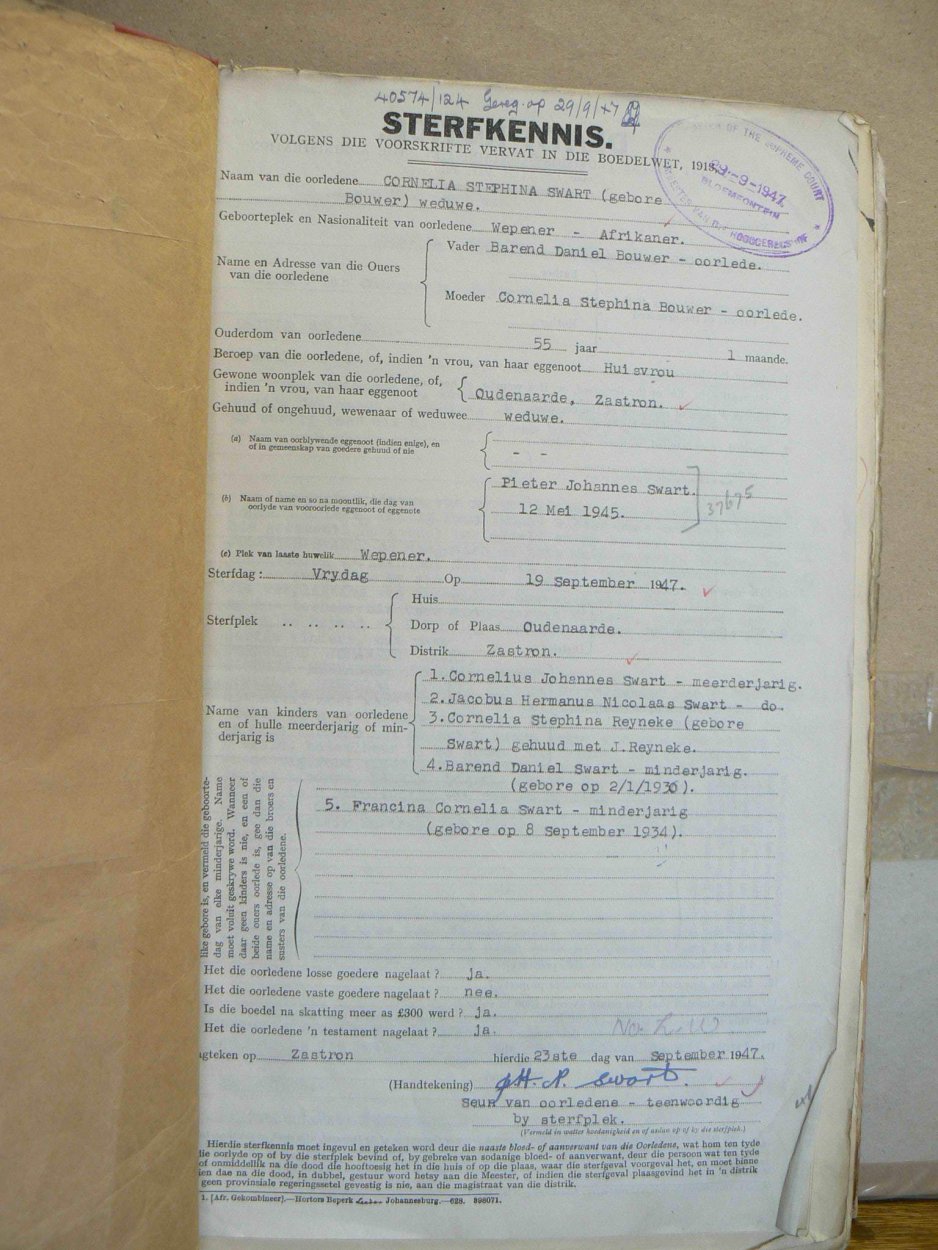 40574/124 Gereg. op 29/9/47
STERFKENNIS.
VOLGENS DIE VOORSKRIFTE VERVAT IN DIE BOEDELWET, 1913.
MASTER OF THE SUPREME COURT
29-9-1947
BLOEMFONTEIN
MEESTER VAN DIE HOOGGEREGSHOF
Naam van die oorledene CORNELIA STEPHINA SWART (gebore
Bouwer) weduwe.
Geboorteplek en Nasionaliteit van oorledene Wepener - Afrikaner.
Name en Adresse van die Ouers
van die oorledene
Vader Barend Daniel Bouwer - oorlede.
Moeder Cornelia Stephina Bouwer - oorlede.
Ouderdom van oorledene 55 jaar 1 maande.
Beroep van die oorledene, of, indien 'n vrou, van haar eggenoot Huisvrou
Gewone woonplek van die oorledene, of,
indien 'n vrou, van haar eggenoot
Oudenaarde, Zastron.
Gehuud of ongehuud, wewenaar of weduwee weduwe.
(a) Naam van oorblywende eggenoot (indien enige), en
of in gemeenskap van goedere gehuud of nie
- -
(b) Naam of name en so na moontlik, die dag van
oorlyde van vooroorlede eggenoot of eggenote
Pieter Johannes Swart.
12 Mei 1945.
37675
(c) Plek van laaste huwelik Wepener.
Sterfdag: Vrydag Op 19 September 1947.
Sterfplek .. .. .. ..
Huis
Dorp of Plaas Oudenaarde.
Distrik Zastron.
Name van kinders van oorledene
en of hulle meerderjarig of min-
derjarig is
1. Cornelius Johannes Swart - meerderjarig.
2. Jacobus Hermanus Nicolaas Swart - do.
3. Cornelia Stephina Reyneke (gebore
Swart) gehuud met J.Reyneke.
4. Barend Daniel Swart - minderjarig.
(gebore op 2/1/1930).
5. Francina Cornelia Swart - minderjarig
(gebore op 8 September 1934).
like gebore is, en vermeld die geboorte-
dag van elke minderjarige. Name
moet voluit geskrywe word. Wanneer
daar geen kinders is nie, en een of
beide ouers oorlede is, gee dan die
name en adresse op van die broers en
susters van die oorledene.
Het die oorledene losse goedere nagelaat? ja.
Het die oorledene vaste goedere nagelaat? nee.
Is die boedel na skatting meer as £300 werd? ja.
Het die oorledene 'n testament nagelaat? ja.
gteken op Zastron hierdie 23ste dag van September 1947.
(Handtekening) J.H.N. Swart.
Seun van oorledene - teenwoordig
by sterfplek.
(Vermeld in watter hoedanigheid en of aanlan op of by die sterfplek.)
Hierdie sterfkennis moet ingevul en geteken word deur die naaste bloed- of aanverwant van die Oorledene, wat hom ten tyde
die oorlyde op of by die sterfplek bevind of, by gebreke van sodanige bloed- of aanverwant, deur die persoon wat ten tyde
of onmiddellik na die dood die hooftoesig het in die huis of op die plaas, waar die sterfgeval voorgeval het, en moet binne
ien dae na die dood, in dubbel, gestuur word hetsy aan die Meester, of indien die sterfgeval plaasgevind het in 'n distrik
geen provinsiale regeringssetel gevestig is nie, aan die magistraat van die distrik.
1. [Afr. Gekombineer].—Hortors Beperk Johannesburg.—628. 898071.